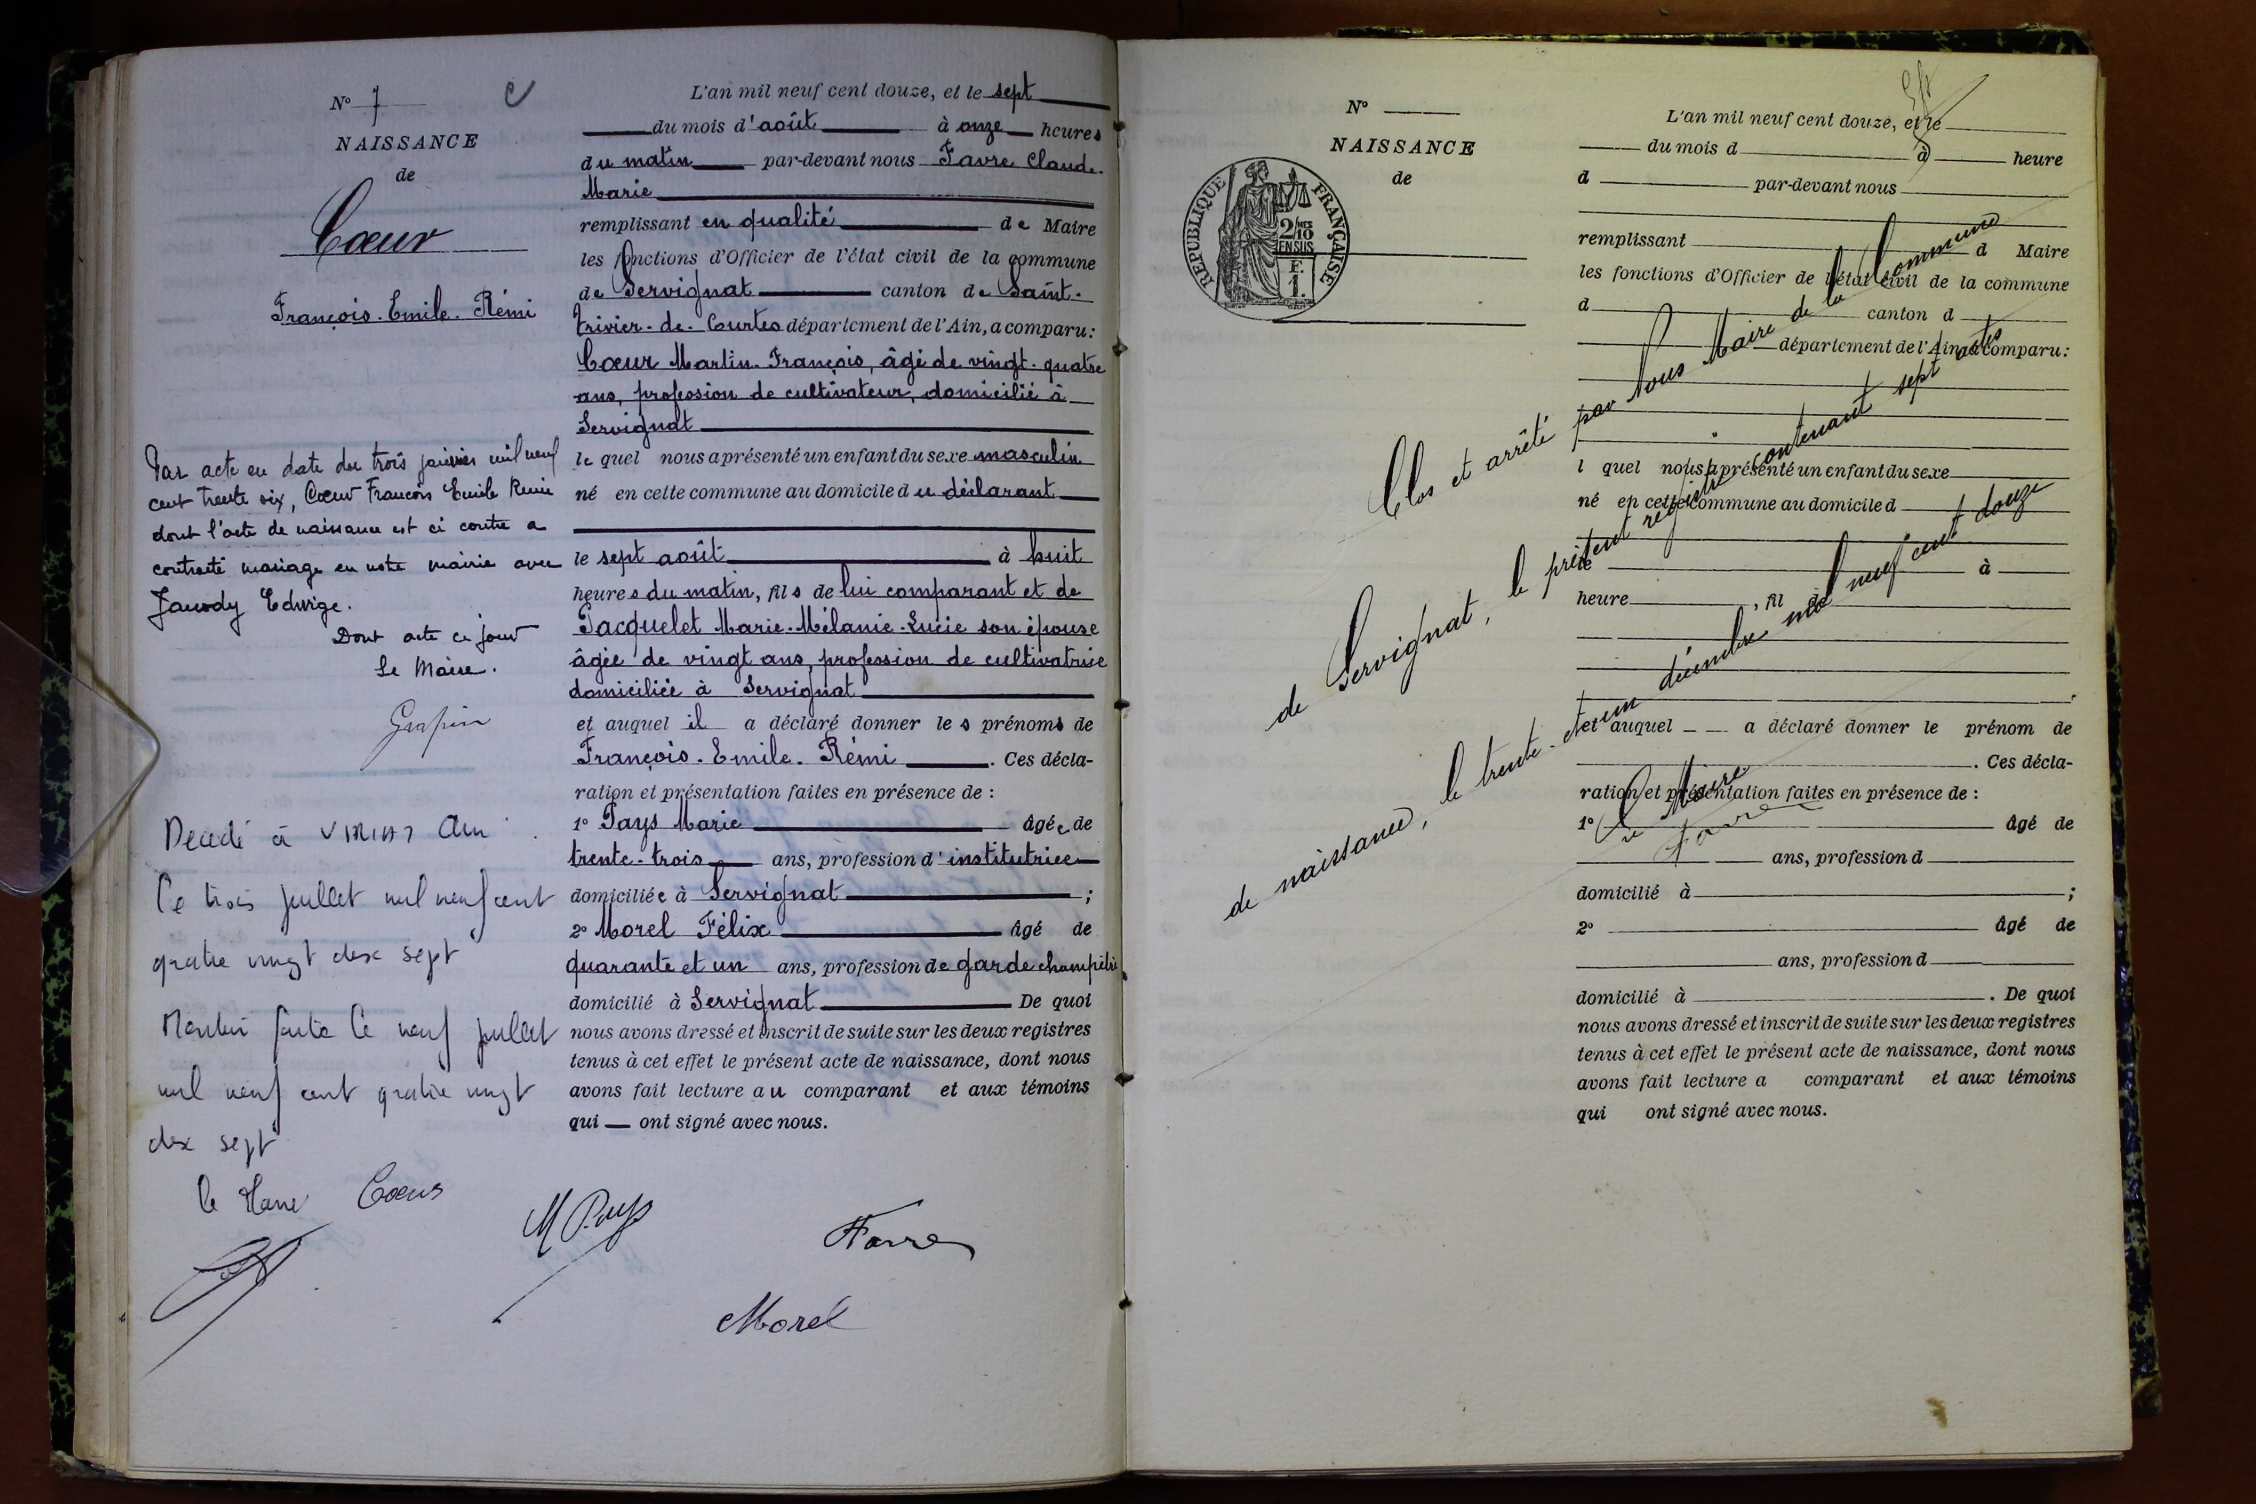 N° 7
NAISSANCE
de
Cœur
François. Emile. Rémi
Par acte en date du trois janvier mil neuf
cent trente six, Cœur François Emile Remi
dont l'acte de naissance est ci contre a
contracté mariage en notre mairie avec
Jausody Edwige.
Dont acte ce jour
Le Maire.
Grafin
Decedé à VIRIAT Ain
Le trois juillet mil neuf cent
quatre vingt dix sept
Mention faite le neuf juillet
mil neuf cent quatre vingt
dix sept
le Maire
L'an mil neuf cent douze, et le sept
du mois d'août à onze heures
du matin par-devant nous Favre Claude-
Marie
remplissant en qualité de Maire
les fonctions d'Officier de l'état civil de la commune
de Servignat canton de Saint-
Trivier-de-Courtes département de l'Ain, a comparu:
Cœur Martin-François, âgé de vingt-quatre
ans, profession de cultivateur, domicilié à
Servignat
le quel nous a présenté un enfant du sexe masculin
né en cette commune au domicile du déclarant
le sept août à huit
heures du matin, fils de lui comparant et de
Pacquelet Marie-Mélanie-Lucie son épouse
âgée de vingt ans, profession de cultivatrice
domiciliée à Servignat
et auquel il a déclaré donner les prénoms de
François. Emile. Rémi. Ces décla-
ration et présentation faites en présence de :
1° Pays Marie Âgée de
trente-trois ans, profession d'institutrice
domiciliée à Servignat ;
2° Morel Félix Âgé de
quarante et un ans, profession de garde champêtre
domicilié à Servignat De quoi
nous avons dressé et inscrit de suite sur les deux registres
tenus à cet effet le présent acte de naissance, dont nous
avons fait lecture au comparant et aux témoins
qui — ont signé avec nous.
Cœur
M Pays
Favre
Morel
N°
NAISSANCE
de
RÉPUBLIQUE FRANÇAISE
2/10
EN SUS
F.
1.
L'an mil neuf cent douze, et le
du mois d à heure
d par-devant nous
remplissant d Maire
les fonctions d'Officier de l'état civil de la commune
d canton d
département de l'Ain, a comparu:
l quel nous a présenté un enfant du sexe
né en cette commune au domicile d
le à
heure , fil de
et auquel a déclaré donner le prénom de
. Ces décla-
ration et présentation faites en présence de :
1° Âgé de
ans, profession d
domicilié à ;
2° Âgé de
ans, profession d
domicilié à . De quoi
nous avons dressé et inscrit de suite sur les deux registres
tenus à cet effet le présent acte de naissance, dont nous
avons fait lecture a comparant et aux témoins
qui ont signé avec nous.
Clos et arrêté par Nous Maire de la Commune
de Servignat, le présent registre contenant sept actes
de naissance, le trente-et-un décembre mil neuf cent douze
Le Maire
Favre